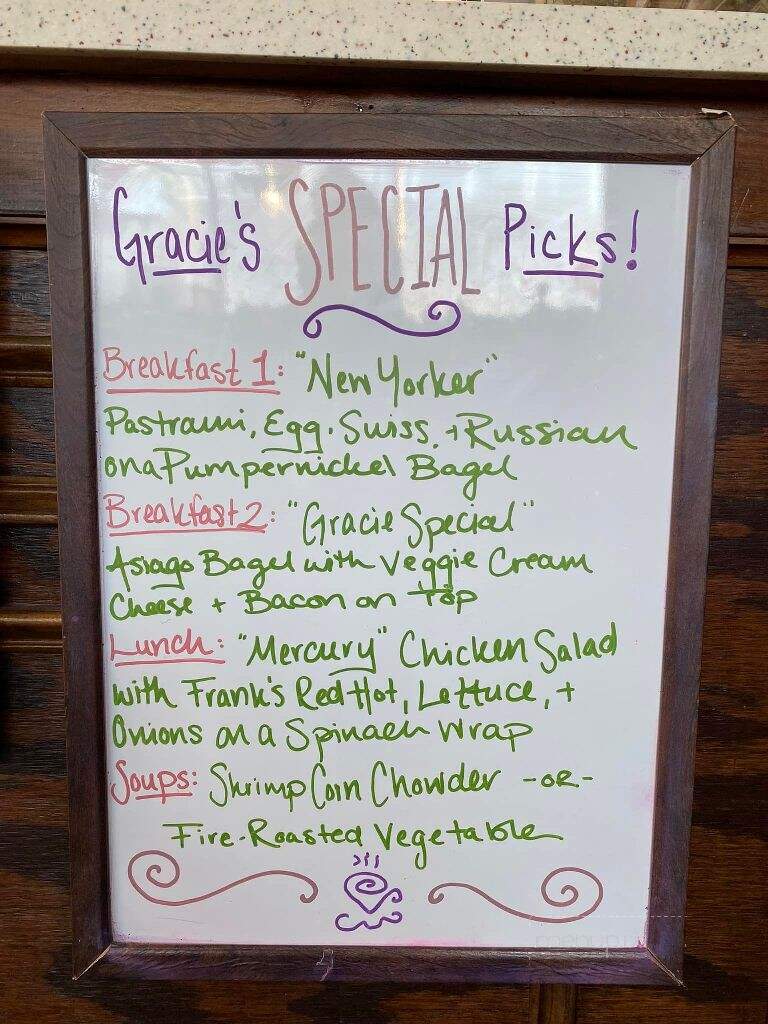 Gracie's SPECIAL Picks!
Breakfast 1: "New Yorker"
Pastrami, Egg, Swiss, + Russian
on a Pumpernickel Bagel
Breakfast 2: "Gracie Special"
Asiago Bagel with Veggie Cream
Cheese + Bacon on Top
Lunch: "Mercury" Chicken Salad
with Frank's RedHot, Lettuce, +
Onions on a Spinach Wrap
Soups: Shrimp Corn Chowder -OR-
Fire-Roasted Vegetable